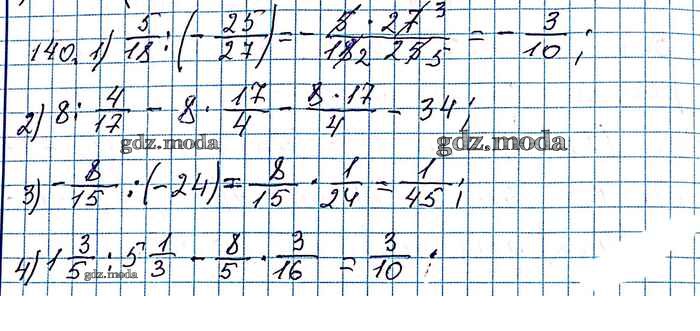 140. 1) 5/18 : (- 25/27) = - 5 · 27 3/18 2 25 5 = - 3/10;
2) 8 : 4/17 - 8 · 17/4 - 8 · 17/4 - 34;
gdz.moda gdz.moda
3) - 8/15 : (-24) = 8/15 · 1/24 = 1/45;
4) 1 3/5 : 5 1/3 - 8/5 · 3/16 = 3/10;
gdz.moda